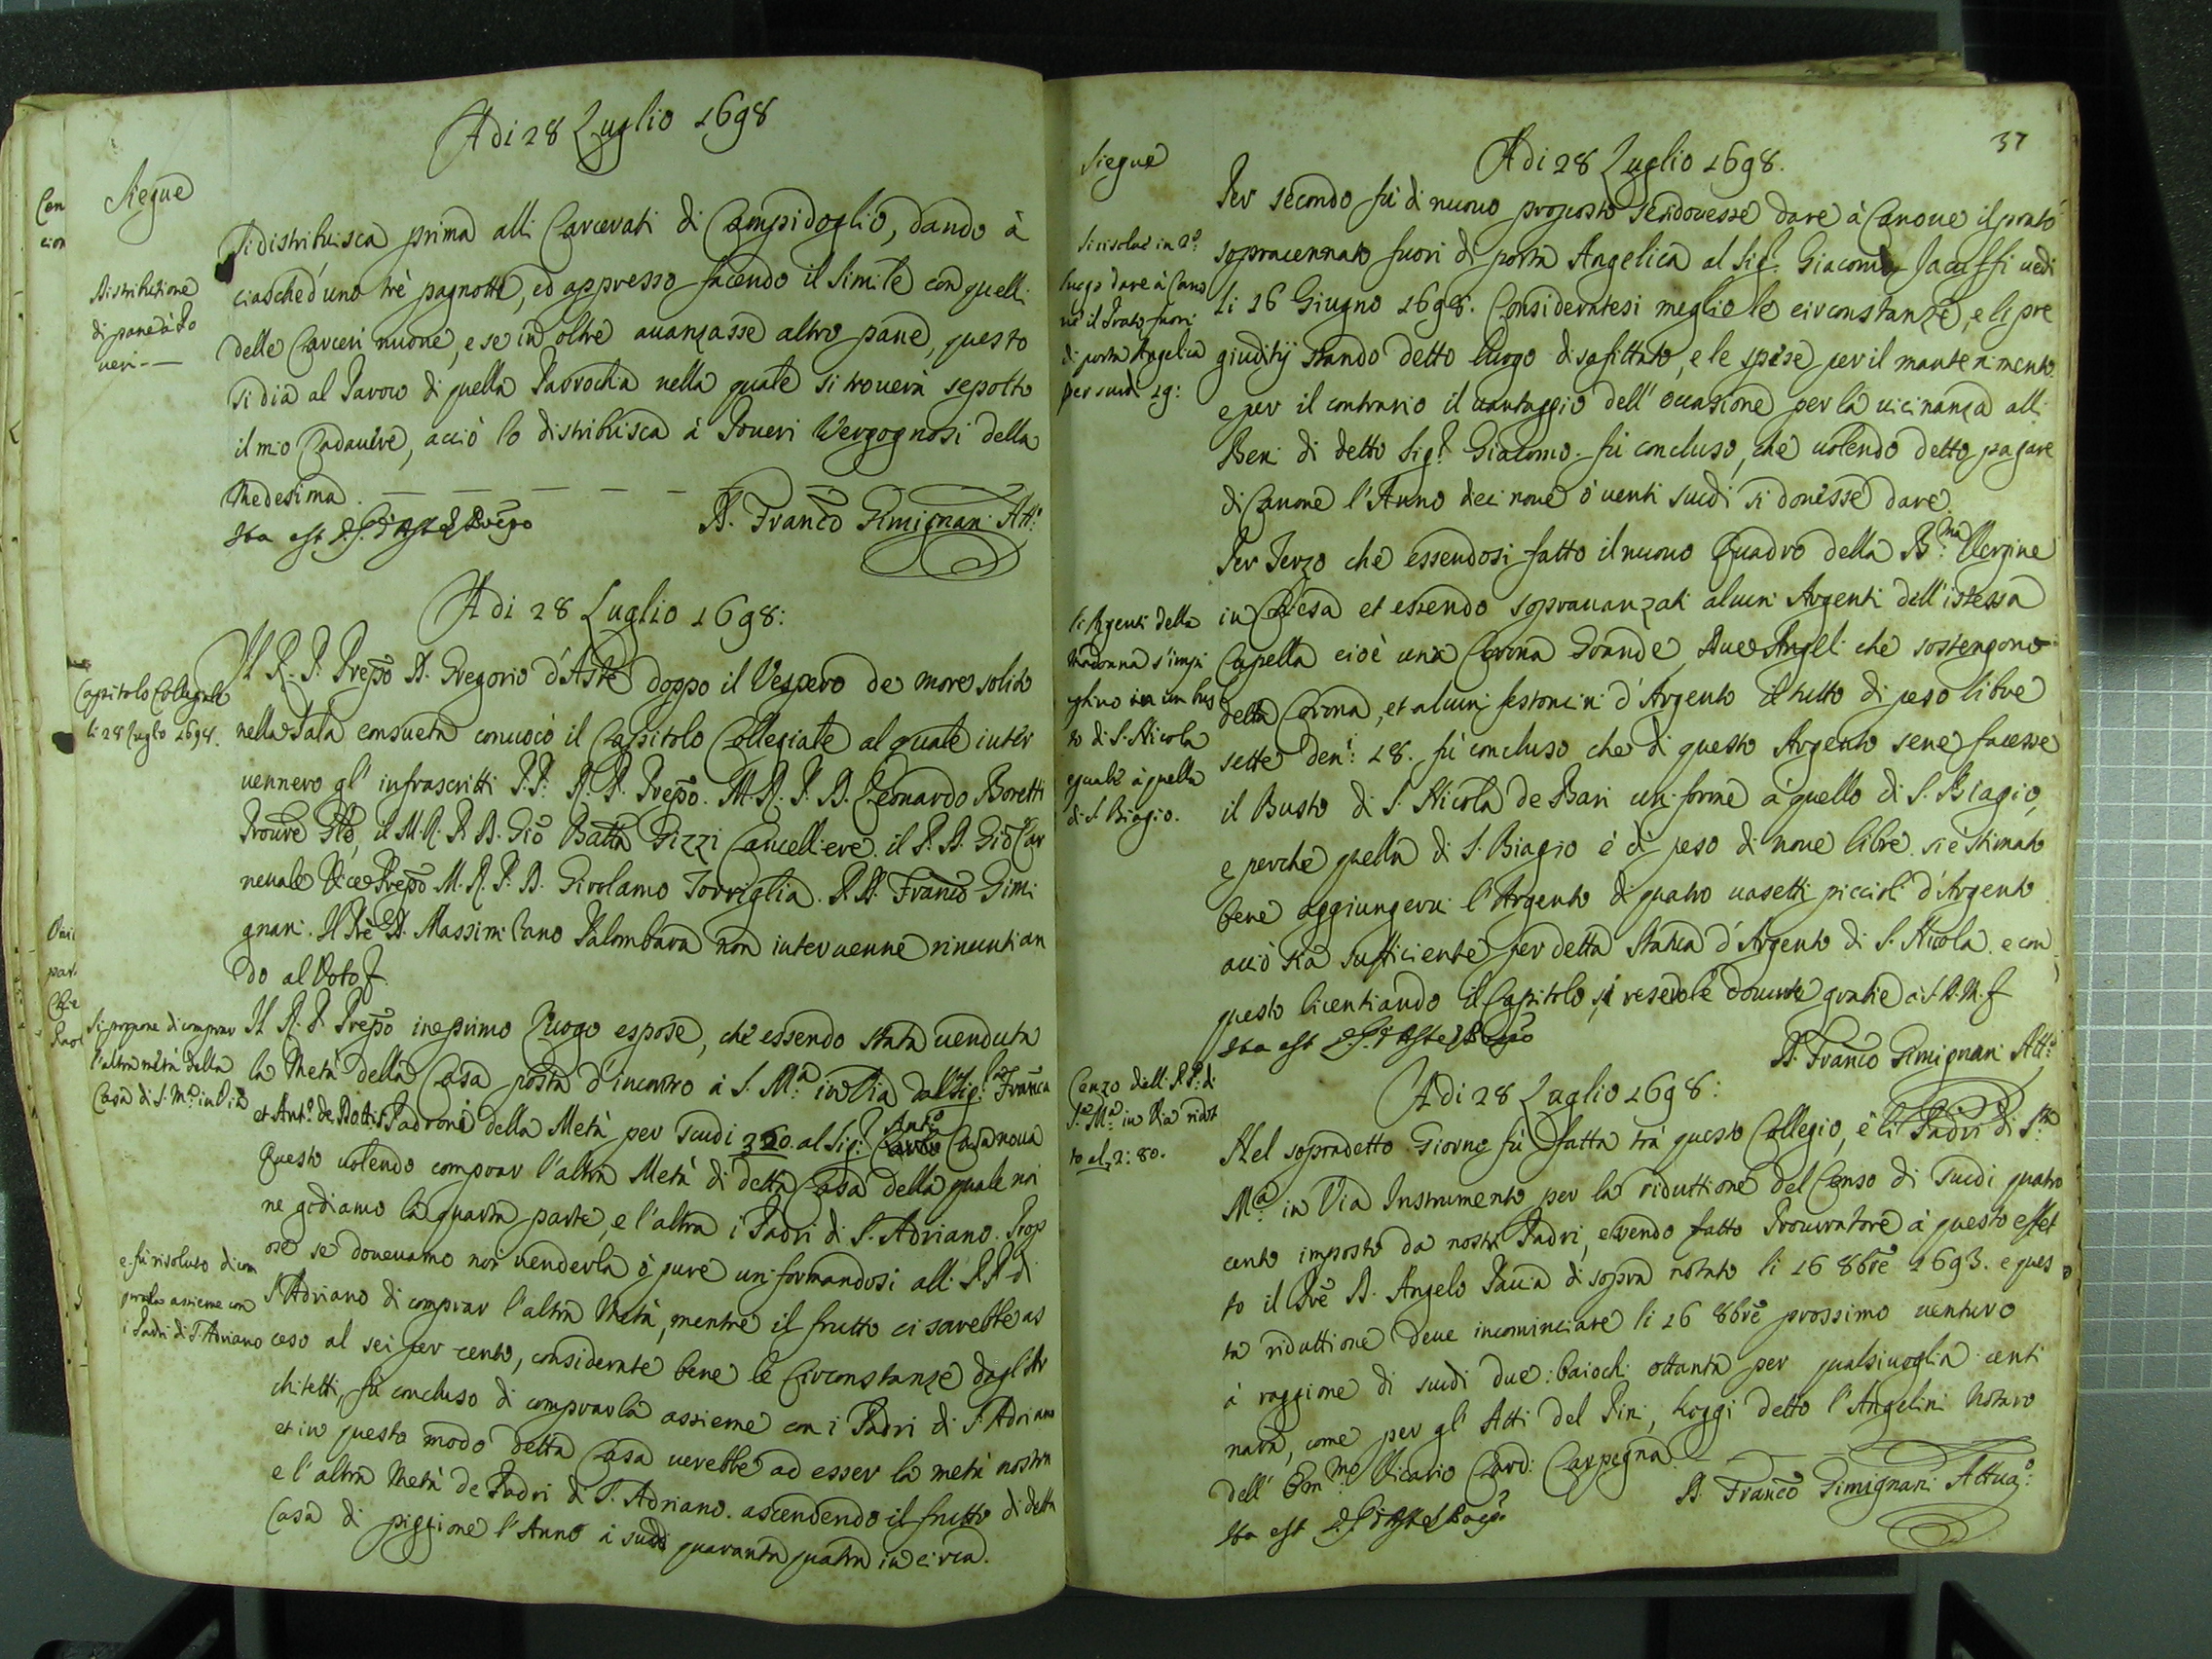 Adi 28 Luglio 1698
Siegue
Si distribuisca prima alli Carcerati di Campidoglio, dando à
ciasched'uno trè pagnotte, ed appresso facendo il simile con quelli
delle Carceri nuove, e se in oltre auanzasse altro pane, questo
si dia al Paroco di quella Parrochia nella quale si trouerà sepolto
il mio Cadauere, acciò lo distribuisca à Poueri Vergognosi della
Medesima.
Distributione
di pane à Po
ueri
Ita est
D. Franco Gimignani Att.o
Adi 28 Luglio 1698:
Capitolo Collegiale
li 28 Luglio 1698.
Il R. P. Prepo D. Gregorio d'Aste doppo il Vespero de more solito
nella Sala consueta conuocò il Capitolo Collegiale al quale inter
uennero gl' infrascritti P.P. R. P. Prepo. M. R. P. D. Leonardo Boretti
Proure Gle, il M. R. P. D. Gio Batta Pizzi Cancelliere. il P. D. Gio Car
neuale Vice Prepo M. R. P. D. Girolamo Torriglia. P. D. Franco Gimi
gnani. Il Pre D. Massimiliano Palombara non interuenne rinuntian
do al Voto
Si propone di comprar
l'altra metà della
Casa di S. Ma in Via
Il R. P. Prepo in primo Luogo espose, che essendo stata uenduta
la Metà della Casa posta d'incontro à S. Ma in Via dal Sig. Franca
et Anto de Padroni della Metà per scudi 360. al Sig. Anto Casanoua
Questo uolendo comprar l'altra Metà di detta Casa della quale noi
ne godiamo la quarta parte, e l'altra i Padri di S. Adriano. Prop
ose se doueuamo noi uenderla ò pure uniformandosi alli P.P. di
S. Adriano di comprar l'altra Metà, mentre il frutto ci sarebbe as
ceso al sei per cento, considerate bene le Circonstanze dagl'Ar
chitetti, fù concluso di comprarla assieme con i Padri di S. Adriano
et in questo modo detta Casa uerebbe ad esser la metà nostra
e l'altra Metà de Padri di S. Adriano. ascendendo il frutto di detta
Casa di piggione l'Anno à scudi quaranta quatro in circa.
e fù risoluto di com
prarla assieme con
i Padri di S. Adriano
37
Adi 28 Luglio 1698.
Siegue
Si risolue in 2o
luogo dare à Cano
ne il Prato fuori
di porta Angelica
per scudi 19:
Per secondo fù di nuouo proposto se si douesse dare à Canone il prato
sopracennato fuori di porta Angelica al Sig. Giacomo Jacuffi uedi
li 16 Giugno 1698. Consideratesi meglio le circonstanze, e li pre
giuditij stando detto luogo disafittato, e le spese per il mantenimento
e per il contrario il uantaggio dell' occasione per la uicinanza alli
Beni di detto Sig. Giacomo. fù concluso, che uolendo detto pagare
di Canone l'Anno deci noue ò uenti scudi si douesse dare.
li Argenti della
Madonna s'impi
eghino in un bus
to di S. Nicola
eguale à quella
di S. Biagio.
Per Terzo che essendosi fatto il nuouo Quadro della B.ma Vergine
in Chiesa et essendo soprauanzati alcuni Argenti dell'istessa
Capella cioè una Corona Grande, due Angeli che sostengono
detta Corona, et alcuni festoncini d'Argento il tutto di peso libre
sette Den: 18. fù concluso che di questo Argento sene facesse
il Busto di S. Nicola de Bari uniforme à quello di S. Biagio,
e perche quella di S. Biagio è di peso di noue libre. si è stimato
bene aggiungerui l'Argento di quatro uasetti piccioli d'Argento
acciò sia sufficiente per detta Statua d'Argento di S. Nicola. e con
questo licentiando il Capitolo, si resero le douute gratie à S. D. M.
Ita est
D. Franco Gimignani Att.o
Adi 28 Luglio 1698:
Cenzo delli P.P. di
S. Ma in Via ridot
to al 2: 80.
Nel sopradetto Giorno fù fatta trà questo Collegio, è li Padri di S.ta
Ma in Via Instrumento per la riduttione del Censo di scudi quatro
cento imposto da nostri Padri, essendo fatto Procuratore à questo effet
to il Pre D. Angelo Pauia di sopra notato li 16 8bre 1693. e ques
ta riduttione deue incominciare li 16 8bre prossimo uenturo
à raggione di scudi due: baiochi ottanta per qualsiuoglia centi
naro, come per gl' Atti del Pini, hoggi detto l'Angelini Notaro
dell' Em.mo Vicario Card: Carpegna.
Ita est
D. Franco Gimignani Attua.o